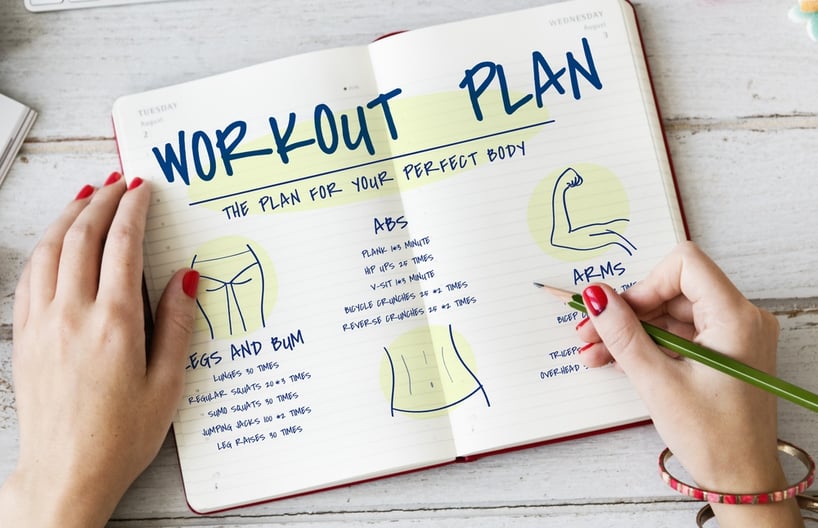 TUESDAY
August
2
WEDNESDAY
August
3
WORKOUT PLAN
THE PLAN FOR YOUR PERFECT BODY
LEGS AND BUM
LUNGES 30 TIMES
REGULAR SQUATS 20*3 TIMES
SUMO SQUATS 30 TIMES
JUMPING JACKS 100 *2 TIMES
LEG RAISES 30 TIMES
ABS
PLANK 1*3 MINUTE
HIP UPS 25 TIMES
V-SIT 1*3 MINUTE
BICYCLE CRUNCHES 25 *2 TIMES
REVERSE CRUNCHES 25 *2 TIMES
ARMS
OVERHEAD